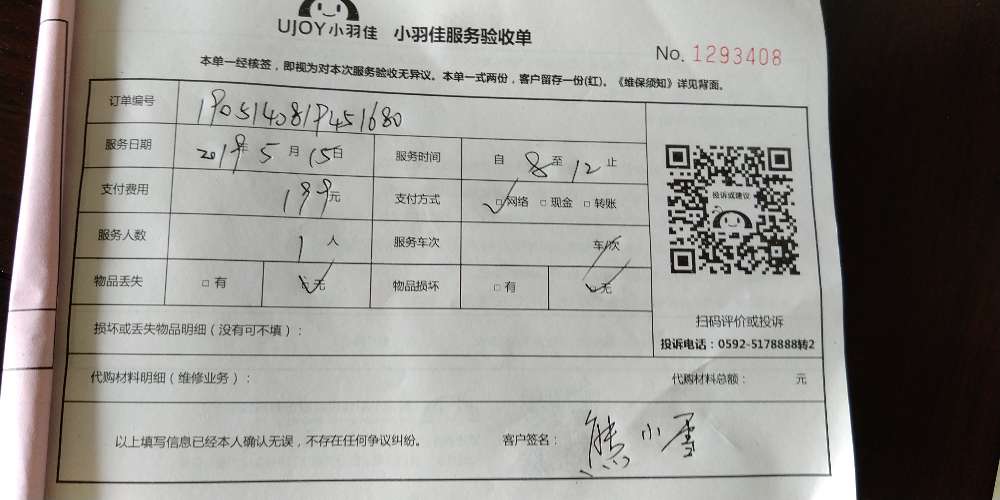 UJOY小羽佳 小羽佳服务验收单
No. 1293408
本单一经核签，即视为对本次服务验收无异议。本单一式两份，客户留存一份(红)。《维保须知》详见背面。
订单编号 1905140819451680
服务日期 2019年5月15日 服务时间 自8至12止
支付费用 199元 支付方式 ☑网络 □现金 □转账
投诉或建议
服务人数 1人 服务车次 车/次
物品丢失 □有 ☑无 物品损坏 □有 ☑无
扫码评价或投诉
损坏或丢失物品明细（没有可不填）：
投诉电话：0592-5178888转2
代购材料明细（维修业务）： 代购材料总额： 元
以上填写信息已经本人确认无误，不存在任何争议纠纷。 客户签名： 熊小雪